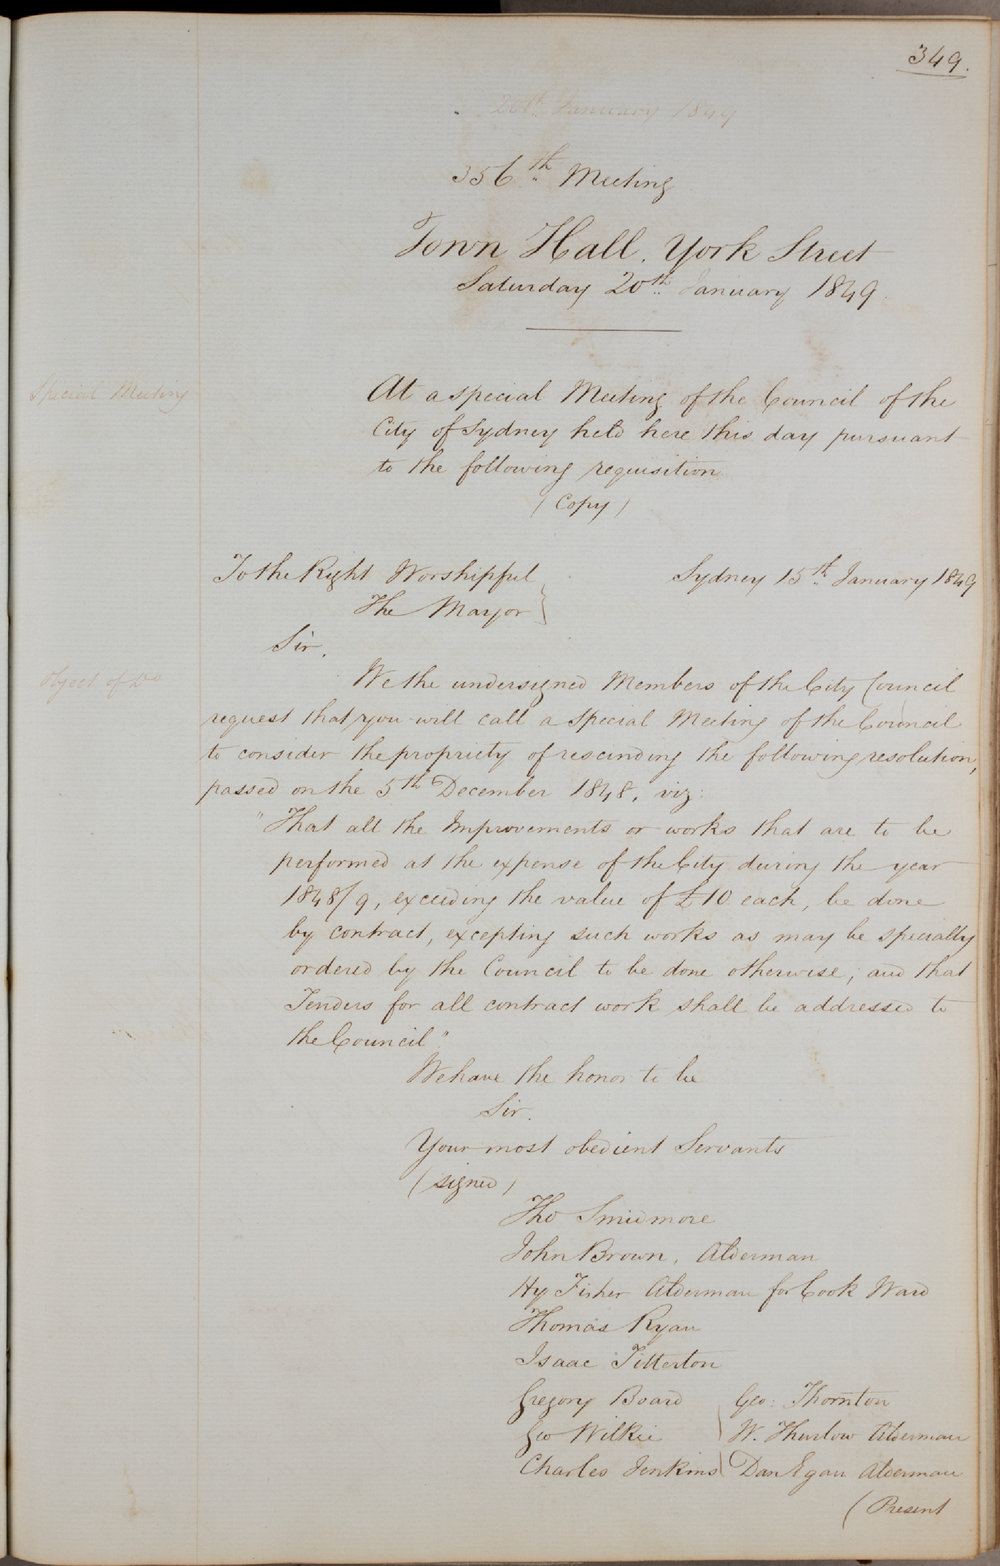 349.
20th January 1849
356th Meeting
Town Hall, York Street
Saturday 20th January 1849.
Special Meeting
At a special Meeting of the Council of the
City of Sydney held here this day pursuant
to the following requisition
(Copy)
To the Right Worshipful
The Mayor
Sydney 15th January 1849
Sir,
Object of Do
We the undersigned Members of the City Council
request that you will call a special Meeting of the Council
to consider the propriety of rescinding the following resolution,
passed on the 5th December 1848, viz:
"That all the Improvements or works that are to be
performed at the expense of the City during the year
1848/9, exceeding the value of £10 each, be done
by contract, excepting such works as may be specially
ordered by the Council to be done otherwise; and that
Tenders for all contract work shall be addressed to
the Council."
We have the honor to be
Sir.
Your most obedient Servants
(signed)
Tho Smidmore
John Brown, Alderman
Hy Fisher Alderman for Cook Ward
Thomas Ryan
Isaac Titterton
Gregory Board
Geo Wilkie
Charles Jenkins
Geo: Thornton
W. Thurlow Alderman
Dan Egan Alderman
(Present